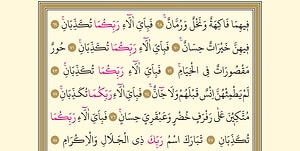 فِيهِمَا فَاكِهَةٌ وَنَخْلٌ وَرُمَّانٌ ﴿٦٨﴾ فَبِأَيِّ آلَاءِ رَبِّكُمَا تُكَذِّبَانِ ﴿٦٩﴾
فِيهِنَّ خَيْرَاتٌ حِسَانٌ ﴿٧٠﴾ فَبِأَيِّ آلَاءِ رَبِّكُمَا تُكَذِّبَانِ ﴿٧١﴾ حُورٌ
مَقْصُورَاتٌ فِي الْخِيَامِ ﴿٧٢﴾ فَبِأَيِّ آلَاءِ رَبِّكُمَا تُكَذِّبَانِ ﴿٧٣﴾
لَمْ يَطْمِثْهُنَّ إِنْسٌ قَبْلَهُمْ وَلَا جَانٌّ ﴿٧٤﴾ فَبِأَيِّ آلَاءِ رَبِّكُمَا تُكَذِّبَانِ ﴿٧٥﴾
مُتَّكِئِينَ عَلَى رَفْرَفٍ خُضْرٍ وَعَبْقَرِيٍّ حِسَانٍ ﴿٧٦﴾ فَبِأَيِّ آلَاءِ رَبِّكُمَا
تُكَذِّبَانِ ﴿٧٧﴾ تَبَارَكَ اسْمُ رَبِّكَ ذِي الْجَلَالِ وَالْإِكْرَامِ ﴿٧٨﴾